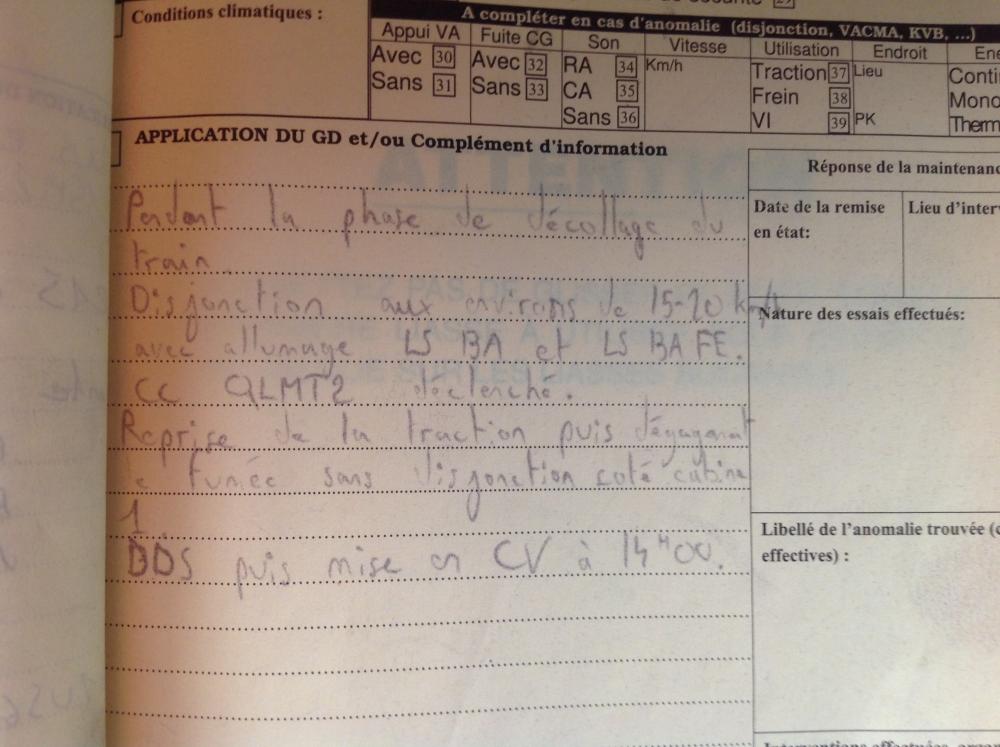 Conditions climatiques :
A compléter en cas d'anomalie (disjonction, VACMA, KVB, ...)
Appui VA Fuite CG Son Vitesse Utilisation Endroit
Avec 30 Avec 32 RA 34 Km/h Traction 37 Lieu
Sans 31 Sans 33 CA 35 Frein 38
Sans 36 VI 39 PK
APPLICATION DU GD et/ou Complément d'information
Réponse de la maintenanc
Pendant la phase de décollage du
train
Date de la remise
en état:
Lieu d'interv
Disjonction aux environs de 15-20 km/h
avec allumage LS BA et LS BA FE.
CC QLMT2 déclenché.
Reprise de la traction puis dégagement
de fumée sans disjonction coté cabine
1
DDS puis mise en CV à 14H00.
Nature des essais effectués:
Libellé de l'anomalie trouvée (c
effectives) :